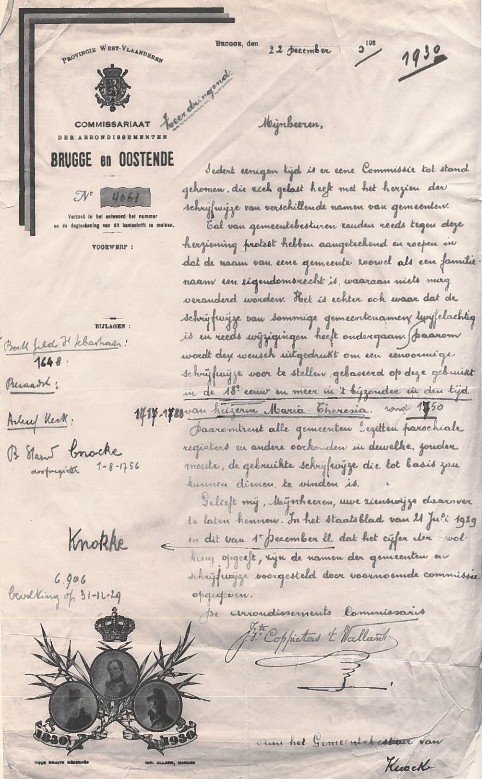 PROVINCIE WEST-VLAANDEREN
COMMISSARIAAT
DER ARRONDISSEMENTEN
BRUGGE en OOSTENDE
Nr 4061
Verzoek in het antwoord het nummer
en de dagteekening van dit handschrift te melden.
VOORWERP :
BIJLAGEN :
1648
1717-1728
B. Stand Cnocke
doopregister 1-8-1756
Knokke
6.906
bevolking op 31-12-29
Zeer dringend.
BRUGGE, den 22 December 193
1930
Mijnheeren,
Sedert eenigen tijd is er eene Commissie tot stand
gekomen, die zich gelast heeft met het herzien der
schrijfwijze van verschillende namen van gemeenten.
Tal van gemeentebesturen zouden reeds tegen deze
herziening protest hebben aangeteekend en roepen in
dat de naam van eene gemeente zoowel als een familie-
naam een eigendomsrecht is, waaraan niets mag
veranderd worden. Het is echter ook waar dat de
schrijfwijze van sommige gemeentenamen twijfelachtig
is en reeds wijzigingen heeft ondergaan. Daarom
wordt den wensch uitgedrukt om een eenvormige
schrijfwijze voor te stellen, gebaseerd op deze gebruikt
in de 18e eeuw en meer in 't bijzonder in den tijd
van keizerin Maria Theresia. rond 1750
Daaromtrent alle gemeenten bezitten parochiale
registers en andere oorkonden in dewelke, zonder
moeite, de gebruikte schrijfwijze die tot basis zou
kunnen dienen, te vinden is.
Gelieft mij, Mijnheeren, uwe zienswijze daarover
te laten kennen. In het staatsblad van 21 Juli 1929
en dit van 1e December ll. dat het cijfer der bevol-
king opgeeft, zijn de namen der gemeenten en
schrijfwijze voorgesteld door voornoemde commissie
opgegeven.
De Arrondissements Commissaris
Coppieters 't Wallant
1830 1930
TOUS DROITS RÉSERVÉS
Aan het Gemeentebestuur van
Knocke